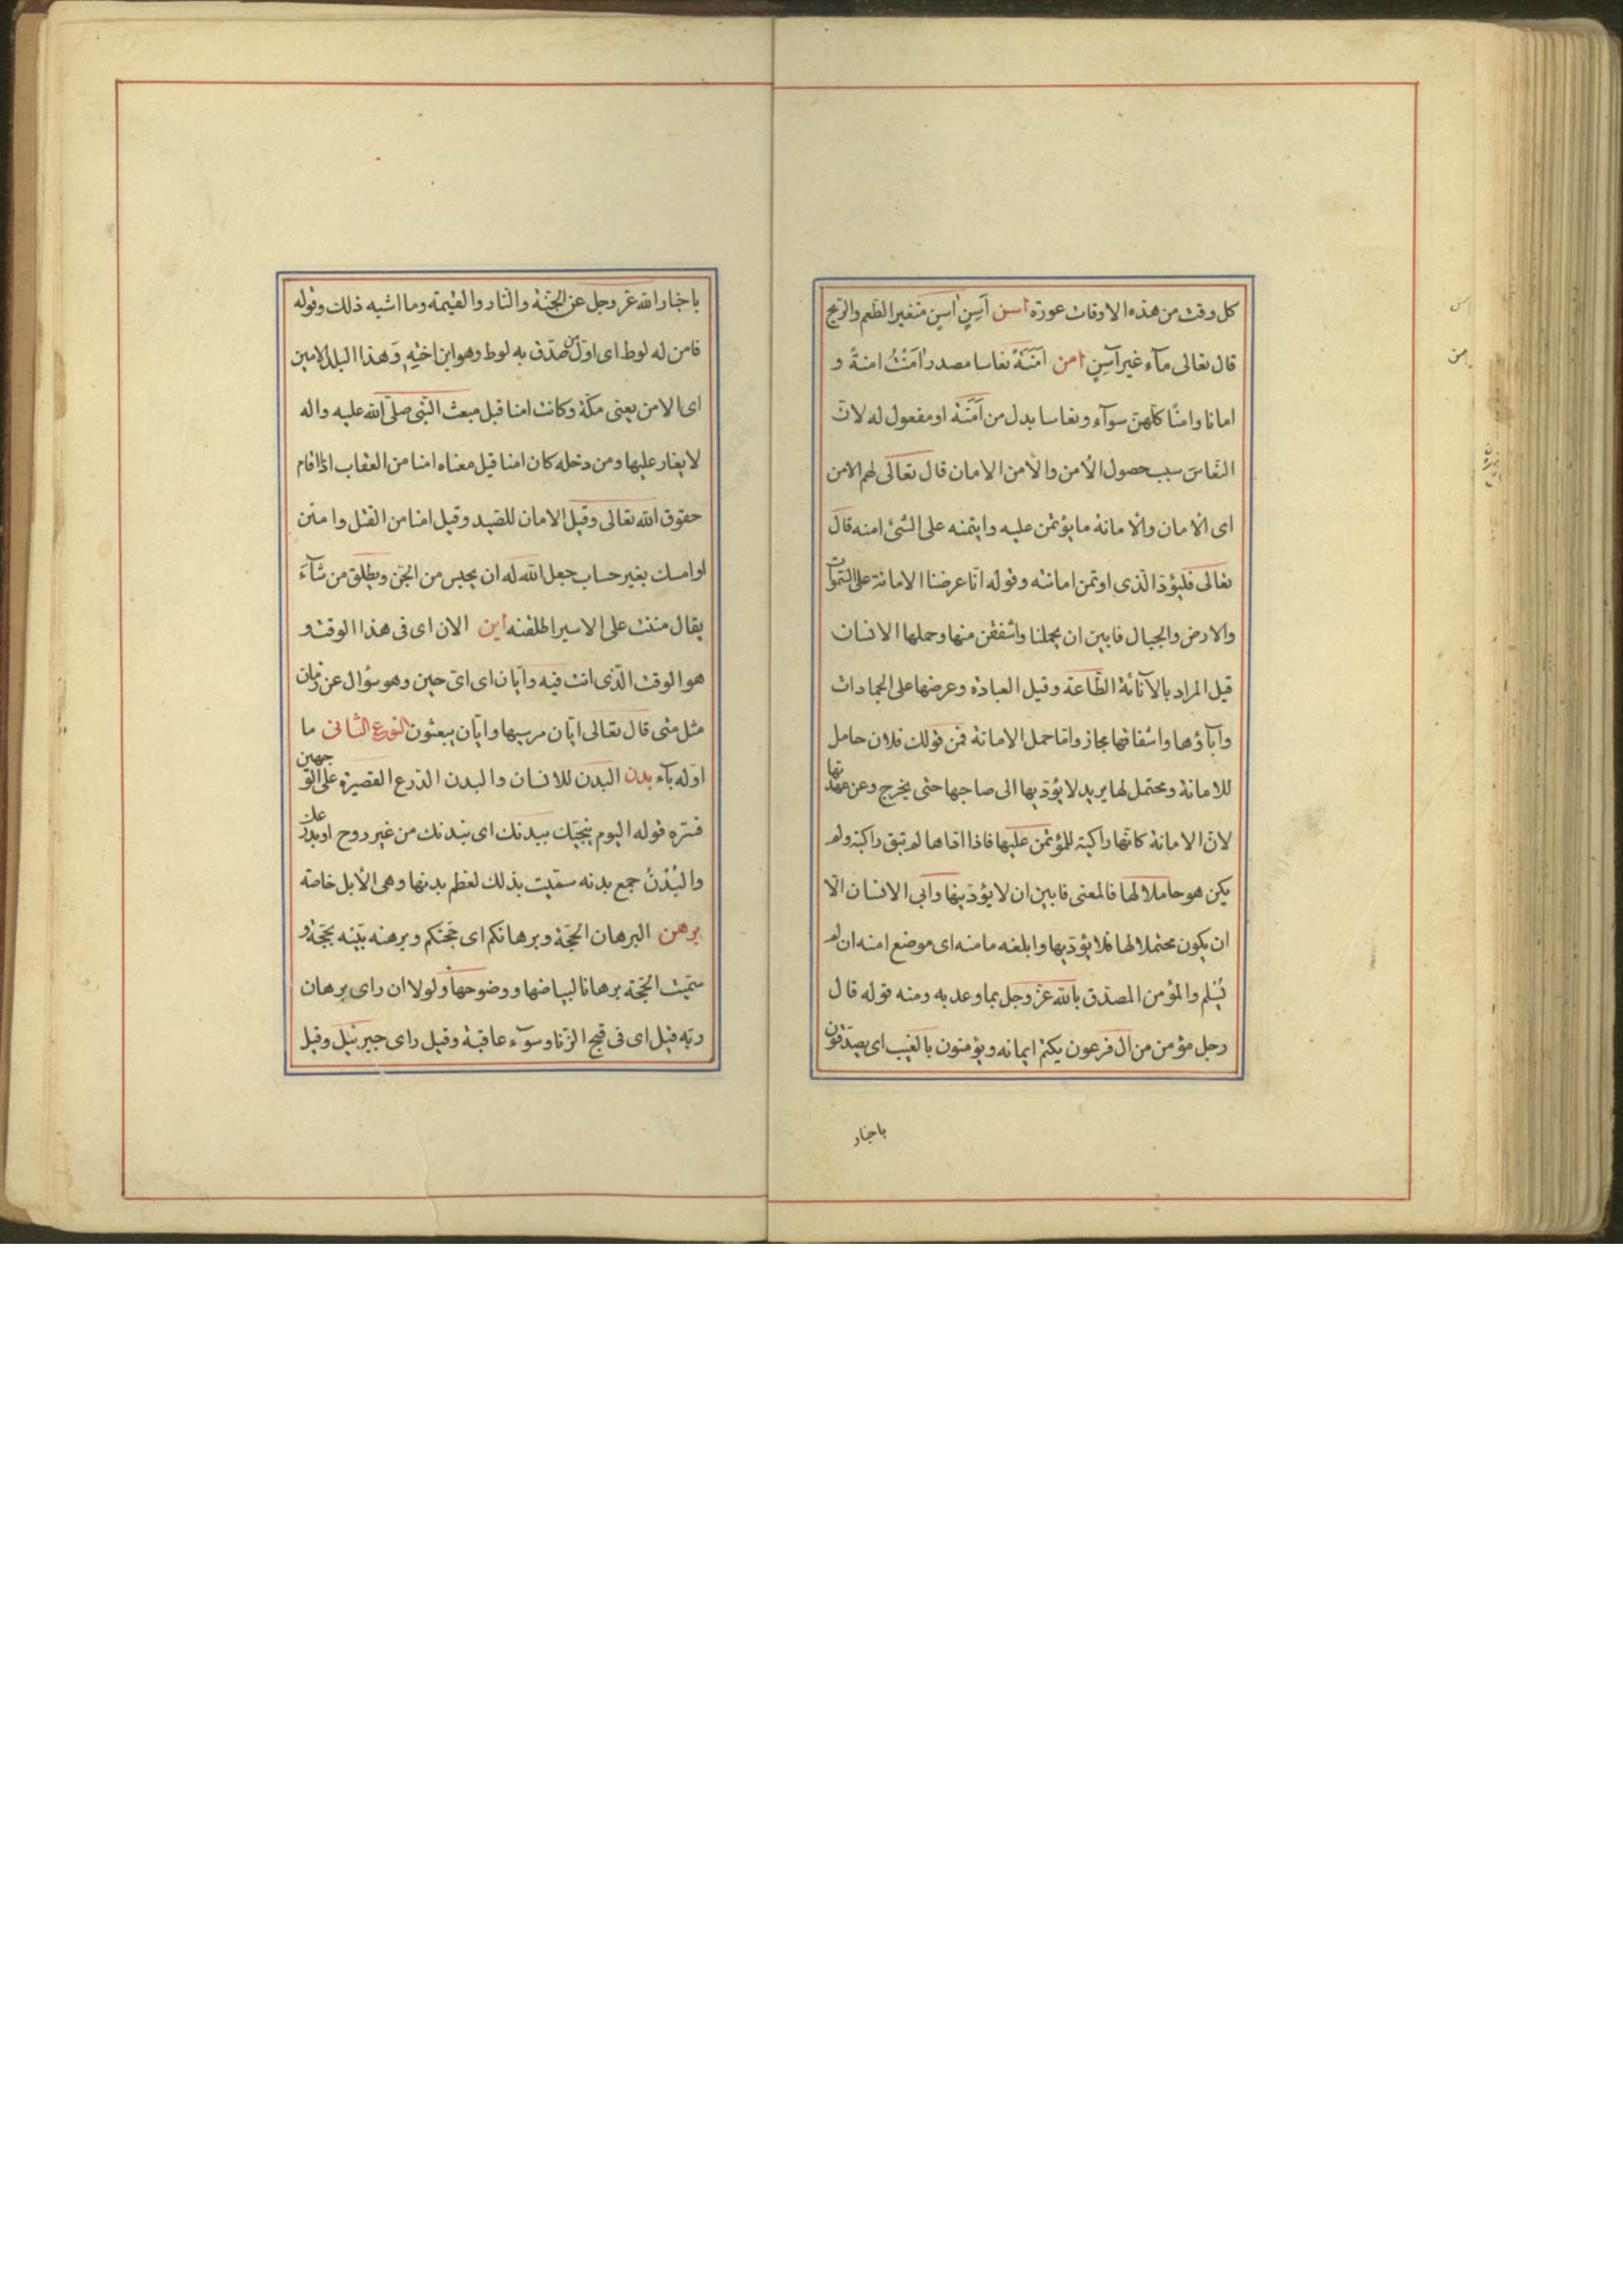 كل وقت من هذه الاوقات عورة اسن آسِنٍ اسِنٍ متغير الطعم والريح
قال تعالى مآء غير آسِنٍ امن اَمَنَةً نعاسا مصدر اَمَنْتُ امنةً و
امانا وامنًا كلهن سوآء ونعاسا بدل من اَمَنَة او مفعول له لان
النعاس سبب حصول الأمن والأمن الامان قال تعالى لهم الامن
اى الأمان والأمانة ما يؤتمن عليه وايتمنه على الشئ امنه قال
تعالى فليؤد الّذى اوتمن امانته وقوله انّا عرضنا الامانة على السّموات
والارض والجبال فابين ان يحملنا واشفقن منها وحملها الانسان
قيل المراد بالأنانة الطّاعة وقيل العبادة وعرضها على الجمادات
وابآؤها واشفاقها مجاز وامّا حمل الامانة فمن قولك فلان حامل
للامانة ومحتمل لها يريد لا يؤدّيها الى صاحبها حتى يخرج وعن عهدتها
لانّ الامانة كانّها راكبة للمؤتمن عليها فاذا ادّاها لم تبق راكبة ولم
يكن هو حاملا لها فالمعنى فابين ان لا يؤدّينها وابى الانسان الّا
ان يكون محتملا لها فلا يؤدّيها وابلغه مامنه اى موضع امنه ان لم
يُسْلِم والمؤمن المصدّق بالله عزّ وجل بما وعد به ومنه قوله قال
رجل مؤمن من ال فرعون يكتم ايمانه ويؤمنون بالغيب اى يصدّقون
باخبار
اسن
امن
باخبار الله عز وجل عن الجنّة والنّار والقيمة وما اشبه ذلك وقوله
فامن له لوط اى اوّل من صدّق به لوط وهو ابن اخيْهِ وَهذا البلد الامين
اى الامن يعنى مكّة وكانت امنا قبل مبعث النّبى صلّى الله عليه واله
لا يغار عليها ومن دخله كان امنا قيل معناه امنا من العقاب اذا اقام
حقوق الله تعالى وقيل الامان للصّيد وقيل امنا من القتل وامنن
او امسك بغير حساب جعل الله له ان يحبس من الجنّ ويطلق من شآءَ
يقال مننت على الاسير اطلقته اين الان اى فى هذا الوقت و
هو الوقت الّذى انت فيه وايّان اى اىّ حين وهو سؤال عن زمان
مثل متى قال تعالى ايّان مرسيها وايّان يبعثون النوع الثانى ما
اوّله بآء بدن البدن للانسان والبدن الدّرع القصيرة على الوجهين
فسّره قوله اليوم ننجيّك ببدنك اى ببدنك من غير روح او بدرعك
والبُدْنُ جمع بدنه سمّيت بذلك لعظم بدنها وهى الأبل خاصة
برهن البرهان الحجّة وبرهانكم اى حجّتكم وبرهنه بيّنه بحجّة و
سمّيت الحجّة برهانا لبياضها ووضوحها ولولا ان راى برهان
ربّه قيل اى فى قبح الزّنا وسوآء عاقبة وقيل راى جبرئيل وقيل